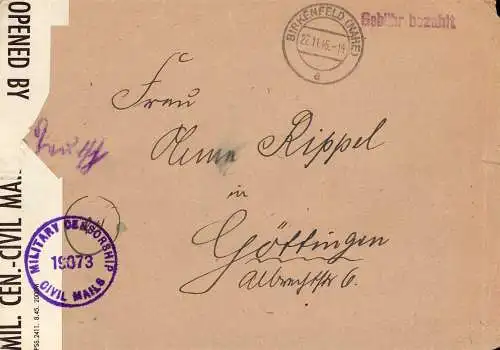 OPENED BY
MIL. CEN.-CIVIL MAI
PSS.2411. 8.45.
BIRKENFELD (NAHE)
22.11.45.-14
a
Gebühr bezahlt
Frau
Rippel
in
Göttingen
Albrechtstr 6.
Deutsch
MILITARY CENSORSHIP
19073
CIVIL MAILS